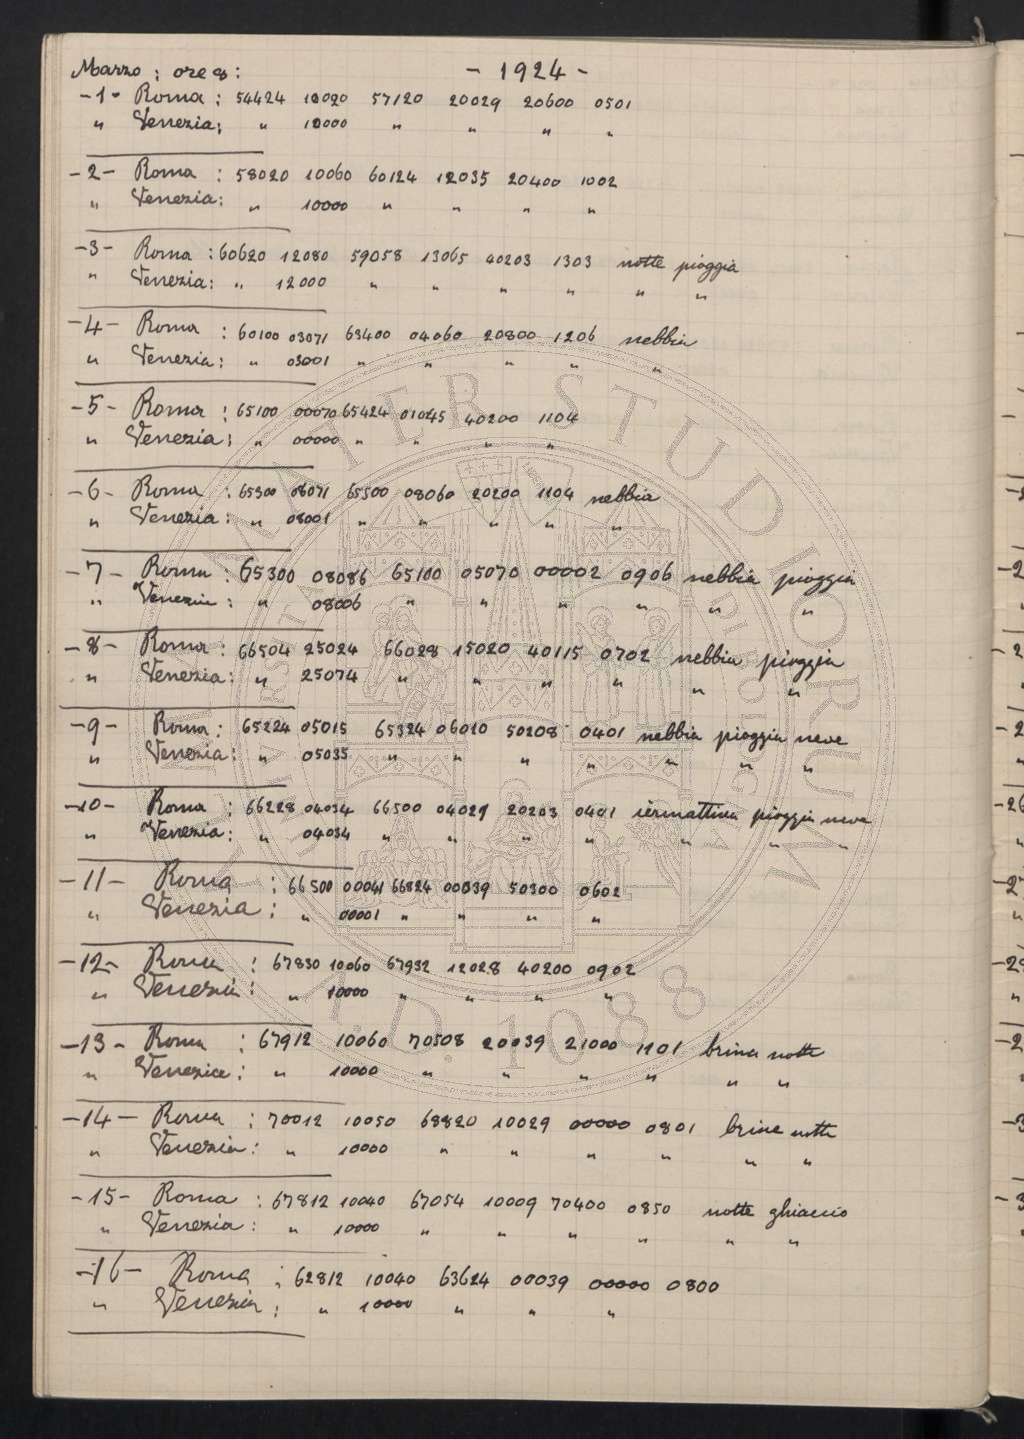 Marzo : ore 8 : - 1924 -
-1- Roma : 54424 10020 57120 20029 20600 0501
" Venezia : " 10000 " " " "
-2- Roma : 58020 10060 60124 12035 20400 1002
" Venezia : " 10000 " " " "
-3- Roma : 60620 12080 59058 13065 40203 1303 notte pioggia
" Venezia : " 12000 " " " " " "
-4- Roma : 60100 03071 63400 04060 20800 1206 nebbia
" Venezia : " 03001 " " " " "
-5- Roma : 65100 00070 65424 01045 40200 1104
" Venezia : " 00000 " " " "
-6- Roma : 65300 08071 65500 08060 20200 1104 nebbia
" Venezia : " 08001 " " " " "
-7- Roma : 65300 08086 65100 05070 00002 0906 nebbia pioggia
" Venezia : " 08006 " " " " " "
-8- Roma : 66504 25024 66028 15020 40115 0702 nebbia pioggia
" Venezia : " 25074 " " " " " "
-9- Roma : 65224 05015 65324 06010 50208 0401 nebbia pioggia neve
" Venezia : " 05035 " " " " " " "
-10- Roma : 66228 04034 66500 04029 20203 0401 iermattina pioggia neve
" Venezia : " 04034 " " " " " " "
-11- Roma : 66500 00041 66824 00039 50300 0602
" Venezia : " 00001 " " " "
-12- Roma : 67830 10060 67932 12028 40200 0902
" Venezia : " 10000 " " " "
-13- Roma : 67912 10060 70508 20039 21000 1101 brina notte
" Venezia : " 10000 " " " " " "
-14- Roma : 70012 10050 68820 10029 00000 0801 brina notte
" Venezia : " 10000 " " " " " "
-15- Roma : 67812 10040 67054 10009 70400 0850 notte ghiaccio
" Venezia : " 10000 " " " " " "
-16- Roma : 62812 10040 63624 00039 00000 0800
" Venezia : " 10000 " " "
ALMA MATER STUDIORUM
A.D. 1088